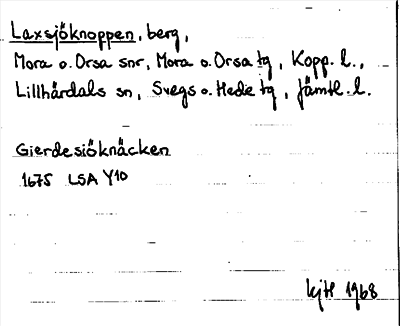 Laxsjöknoppen, berg,
Mora o. Orsa snr, Mora o. Orsa tg, Kopp. l.,
Lillhärdals sn, Svegs o. Hede tg, Jämtl. l.
Gierdesiöknäcken
1675 LSA Y10
kjtl 1968